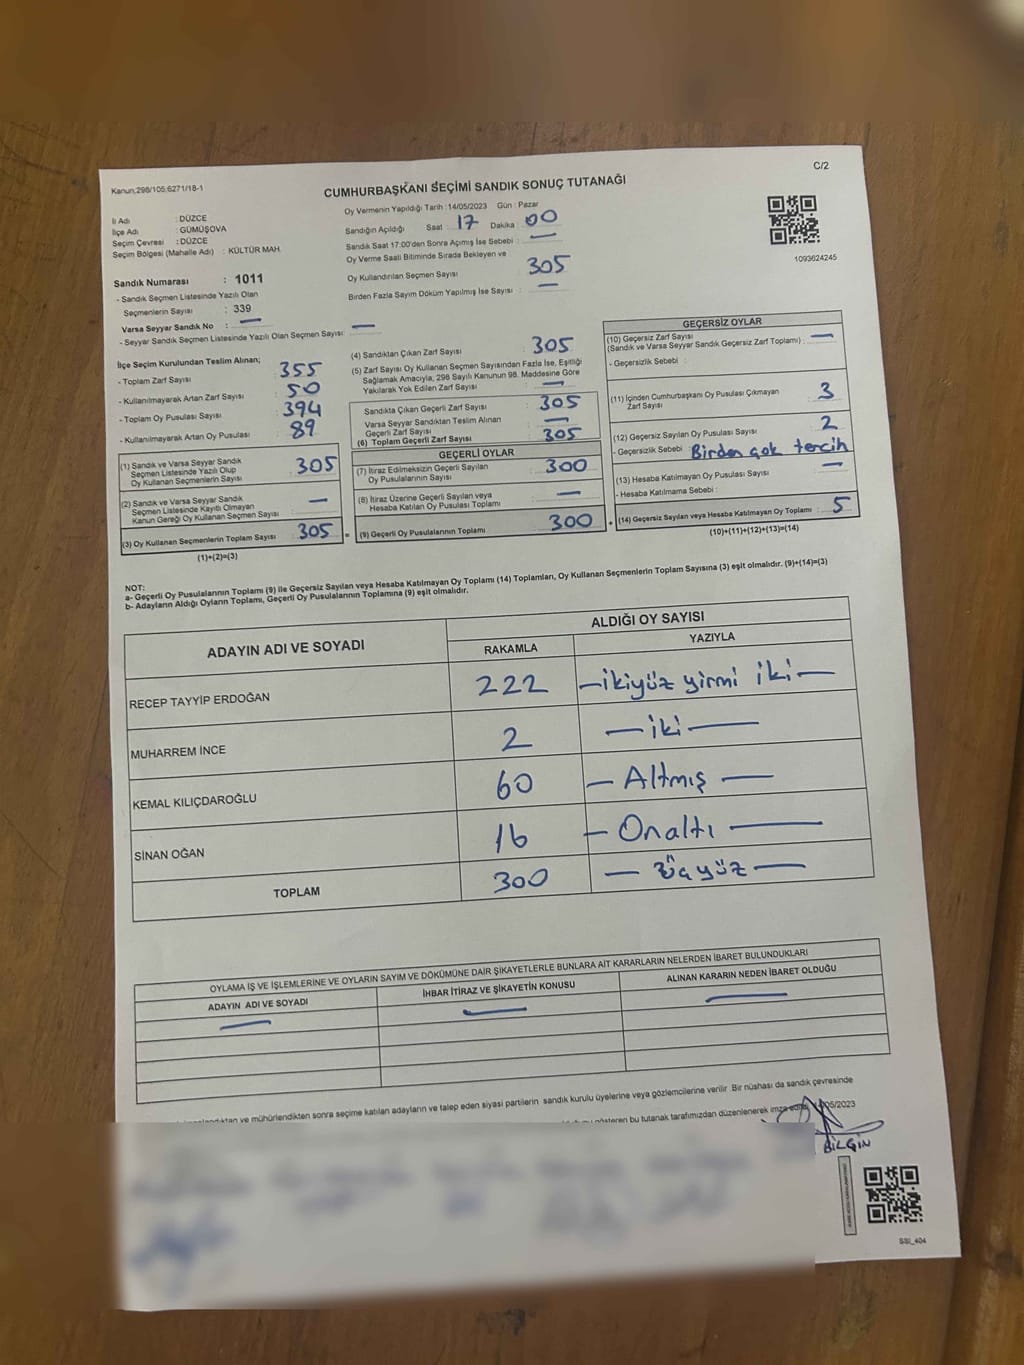 C/2
Kanun;298/105,6271/18-1
CUMHURBAŞKANI SEÇİMİ SANDIK SONUÇ TUTANAĞI
İl Adı : DÜZCE
İlçe Adı : GÜMÜŞOVA
Seçim Çevresi : DÜZCE
Seçim Bölgesi (Mahalle Adı) : KÜLTÜR MAH.
Sandık Numarası : 1011
- Sandık Seçmen Listesinde Yazılı Olan
Seçmenlerin Sayısı : 339
Varsa Seyyar Sandık No : —
- Seyyar Sandık Seçmen Listesinde Yazılı Olan Seçmen Sayısı: —
Oy Vermenin Yapıldığı Tarih :14/05/2023 Gün : Pazar
Sandığın Açıldığı Saat : 17 Dakika : 00
Sandık Saat 17:00'den Sonra Açımış İse Sebebi : —
Oy Verme Saali Bitiminde Sırada Bekleyen ve
Oy Kullandırılan Seçmen Sayısı 305
Birden Fazla Sayım Döküm Yapılmış İse Sayısı : —
1093624245
İlçe Seçim Kurulundan Teslim Alınan;
- Toplam Zarf Sayısı : 355
- Kullanılmayarak Artan Zarf Sayısı : 50
- Toplam Oy Pusulası Sayısı : 394
- Kullanılmayarak Artan Oy Pusulası : 89
(1) Sandık ve Varsa Seyyar Sandık
Seçmen Listesinde Yazılı Olup
Oy Kullanan Seçmenlerin Sayısı : 305
(2) Sandık ve Varsa Seyyar Sandık
Seçmen Listesinde Kayıtlı Olmayan
Kanun Gereği Oy Kullanan Seçmen Sayısı : —
(3) Oy Kullanan Seçmenlerin Toplam Sayısı : 305 =
(1)+(2)=(3)
(4) Sandıktan Çıkan Zarf Sayısı : 305
(5) Zarf Sayısı Oy Kullanan Seçmen Sayısından Fazla İse, Eşitliği
Sağlamak Amacıyla, 298 Sayılı Kanunun 98. Maddesine Göre
Yakılarak Yok Edilen Zarf Sayısı : —
Sandıkta Çıkan Geçerli Zarf Sayısı : 305
Varsa Seyyar Sandıktan Teslim Alınan
Geçerli Zarf Sayısı : —
(6) Toplam Geçerli Zarf Sayısı : 305
GEÇERLİ OYLAR
(7) İtiraz Edilmeksizin Geçerli Sayılan
Oy Pusulalarının Sayısı : 300
(8) İtiraz Üzerine Geçerli Sayılan veya
Hesaba Katılan Oy Pusulası Toplamı : —
(9) Geçerli Oy Pusulalarının Toplamı : 300 +
GEÇERSİZ OYLAR
(10) Geçersiz Zarf Sayısı
(Sandık ve Varsa Seyyar Sandık Geçersiz Zarf Toplamı) : —
- Geçersizlik Sebebi :
(11) İçinden Cumhurbaşkanı Oy Pusulası Çıkmayan
Zarf Sayısı : 3
(12) Geçersiz Sayılan Oy Pusulası Sayısı : 2
- Geçersizlik Sebebi : Birden çok tercih
(13) Hesaba Katılmayan Oy Pusulası Sayısı : —
- Hesaba Katılmama Sebebi :
(14) Geçersiz Sayılan veya Hesaba Katılmayan Oy Toplamı : 5
(10)+(11)+(12)+(13)=(14)
NOT:
a- Geçerli Oy Pusulalarının Toplamı (9) ile Geçersiz Sayılan veya Hesaba Katılmayan Oy Toplamı (14) Toplamları, Oy Kullanan Seçmenlerin Toplam Sayısına (3) eşit olmalıdır. (9)+(14)=(3)
b- Adayların Aldığı Oyların Toplamı, Geçerli Oy Pusulalarının Toplamına (9) eşit olmalıdır.
ADAYIN ADI VE SOYADI ALDIĞI OY SAYISI
RAKAMLA YAZIYLA
RECEP TAYYİP ERDOĞAN 222 — ikiyüz yirmi iki —
MUHARREM İNCE 2 — iki —
KEMAL KILIÇDAROĞLU 60 — Altmış —
SİNAN OĞAN 16 — Onaltı —
TOPLAM 300 — üçyüz —
OYLAMA İŞ VE İŞLEMLERİNE VE OYLARIN SAYIM VE DÖKÜMÜNE DAİR ŞİKAYETLERLE BUNLARA AİT KARARLARIN NELERDEN İBARET BULUNDUKLARI
ADAYIN ADI VE SOYADI İHBAR İTİRAZ VE ŞİKAYETİN KONUSU ALINAN KARARIN NEDEN İBARET OLDUĞU
— — —
ve mühürlendikten sonra seçime katılan adayların ve talep eden siyasi partilerin sandık kurulu üyelerine veya gözlemcilerine verilir Bir nüshası da sandık çevresinde
gösteren bu tutanak tarafımızdan düzenlenerek imza edildi. 14/05/2023
BİLGİN
SSI_404